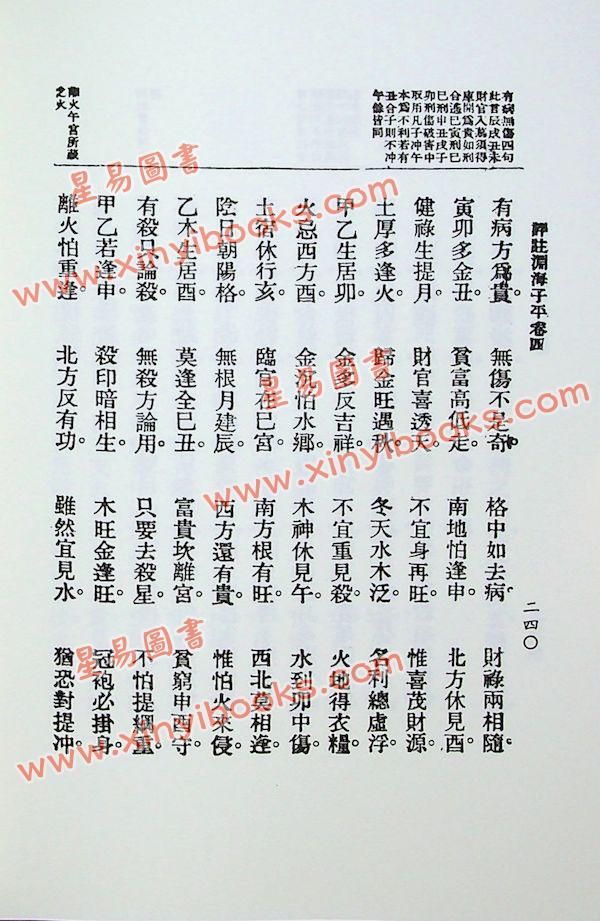 評註淵海子平卷四
二四〇
有病無傷四句
此言辰戌丑未
財官入墓須得
庫開爲貴如刑
合逃巳寅刑巳
巳刑申丑戌子
卯刑傷破害中
取用凡子冲午
本爲不利若有
丑合子則不冲
午餘皆同
離火午宮所藏
之火
有病方爲貴。無傷不是奇。格中如去病。財祿兩相隨。
寅卯多金丑。貧富高低走。南地怕逢申。北方休見酉。
健祿生提月。財官喜透天。不宜身再旺。惟喜茂財源。
土厚多逢火。歸金旺遇秋。冬天水木泛。名利總虛浮。
甲乙生居卯。金多反吉祥。不宜重見殺。火地得衣糧。
火忌西方酉。金沉怕水鄉。木神休見午。水到卯中傷。
土宿休行亥。臨官在巳宮。南方根有旺。西北莫相逢。
陰日朝陽格。無根月建辰。西方還有貴。惟怕火來侵。
乙木生居酉。莫逢全巳丑。富貴坎離宮。貧窮申酉守。
有殺只論殺。無殺方論用。只要去殺星。不怕提綱重。
甲乙若逢申。殺印暗相生。木旺金逢旺。冠袍必掛身。
離火怕重逢。北方反有功。雖然宜見水。猶恐對提冲。
星易圖書
www.xinyibooks.com
星易圖書
www.xinyibooks.com
星易圖書
www.xinyibooks.com